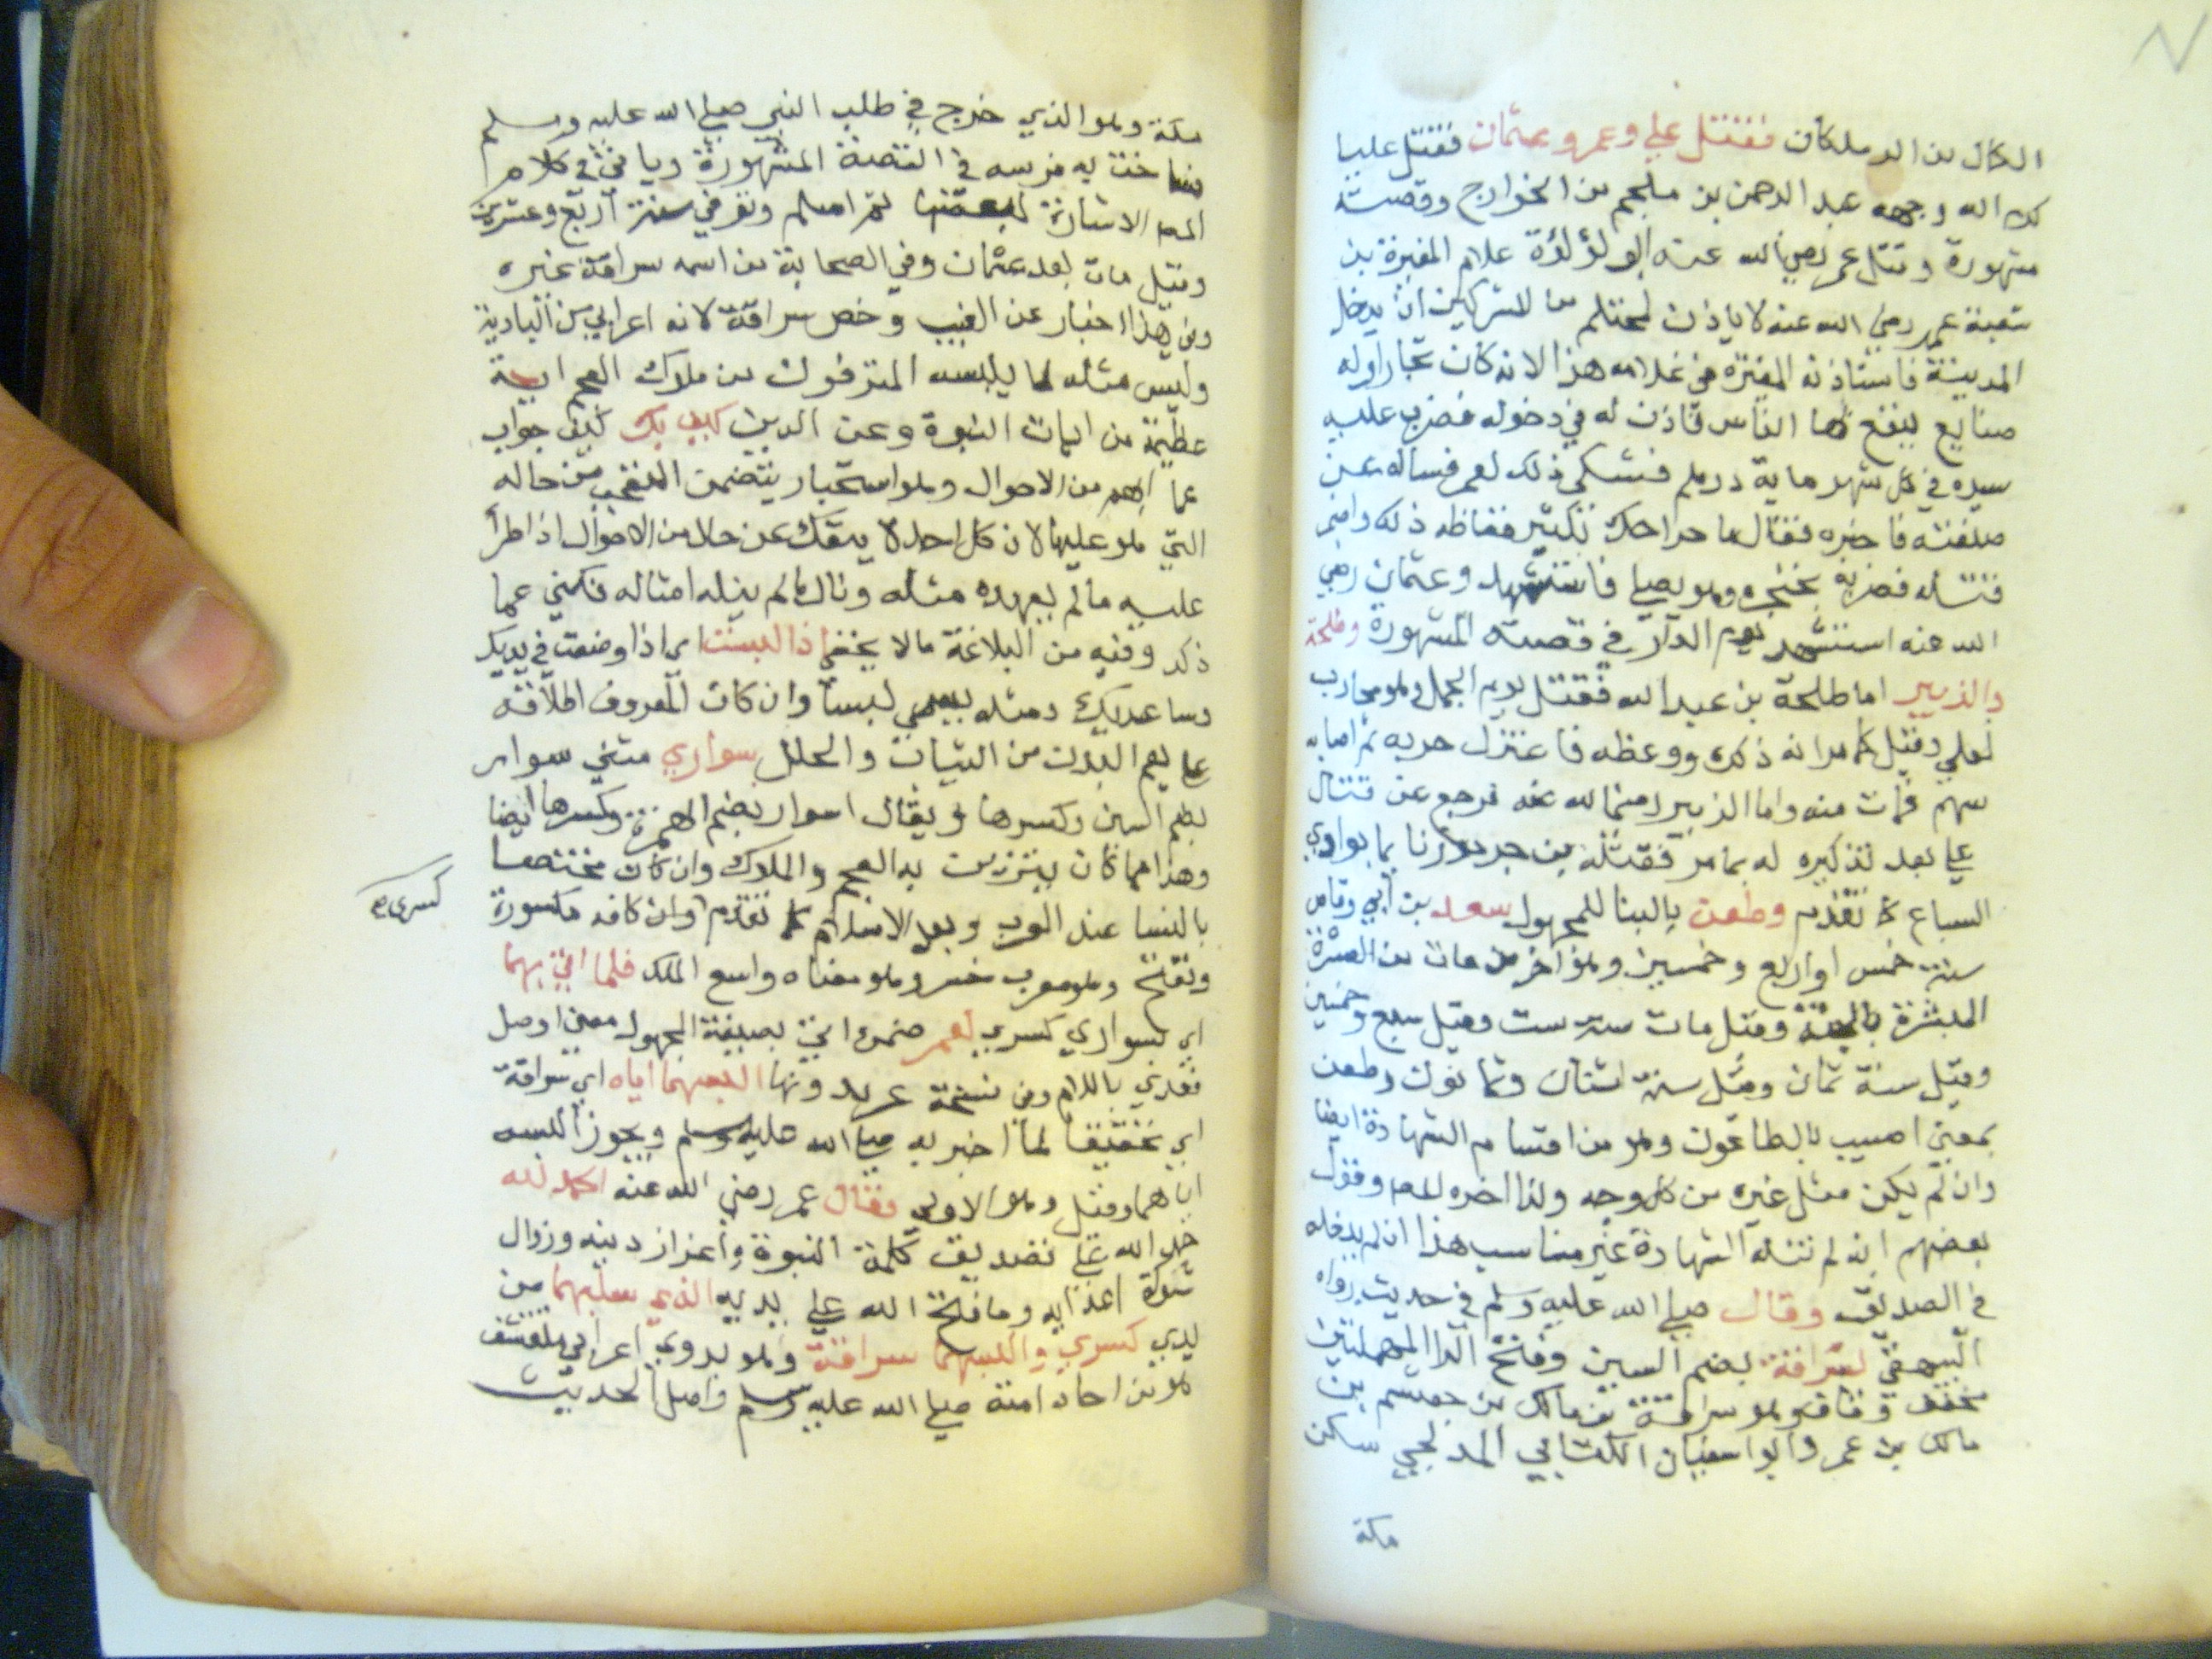 الكال من الدملكان فقتل علي وعمر وعثمان فقتل عليا
كرم الله وجهه عبد الرحمن بن ملجم من الخوارج وقصته
مشهورة وقتل عمر رضي الله عنه ابو لؤلؤة غلام المغيرة بن
شعبة عمر رضي الله عنه لا ياذن لمحتلم من المشركين ان يدخل
المدينة فاستاذنه المغيرة في غلامه هذا لانه كان نجارا وله
صنايع ينفع بها الناس فاذن له في دخوله فضرب عليه
سيده في كل شهر ماية درهم فشكى ذلك لعمر فساله عن
صنعته فاخبره فقال ما خراجك بكثير فغاظه ذلك واضمر
قتله فضربه بخنجره وهو يصلي فاستشهد وعثمان رضي
الله عنه استشهد يوم الدار في قصته المشهورة وطلحة
والزبير اما طلحة بن عبد الله فقتل يوم الجمل وهو محارب
لعلي وقيل كما مر انه ذكره ووعظه فاعتزل حربه ثم اصابه
سهم فمات منه واما الزبير رضي الله عنه فرجع عن قتال
علي بعد تذكيره له بما مر فقتله بن جرموز بوادي
السباع كما تقدم وطعن بالبنا للمجهول سعد بن ابي وقاص
سنة خمس او اربع وخمسين وهو اخر من مات من العشرة
المبشرة بالجنة وقيل مات سنة ست وقيل سبع وخمسين
وقيل سنة ثمان وقيل سنة اثنان وثمانون وطعن
بمعنى اصيب بالطاعون وهو من اقسام الشهادة ايضا
وان لم يكن مثل غيره من كل وجه ولذا اخره المص وقول
بعضهم انه لم تنله الشهادة غير مناسب هذا ان لم يدخله
في الصديق وقال صلى الله عليه وسلم في حديث رواه
البيهقي لسراقة بضم السين وفتح الرا المهملتين
مخففة وقاف وهو سراقة بن مالك بن جعشم بن
مالك بن عمر وابو اسفيان الكناني المدلجي سكن
مكة
مكة وهو الذي خرج في طلب النبي صلى الله عليه وسلم
فساخت به فرسه في القصة المشهورة وياتي في كلام
المص الاشارة لبعضها ثم اسلم وتوفي سنة اربع وعشرين
وقيل مات بعد عثمان وفي الصحابة من اسمه سراقة غيره
وفي هذا اخبار عن الغيب وخص سراقة لانه اعرابي من البادية
وليس مثله لما يلبسه المترفون من ملوك العجم اية
عظيمة من ايات النبوة وعن الدين كيف بك كيف جواب
عما ابهم من الاحوال وهو استخبار يتضمن التعجب من حاله
التي هو عليها لان كل احد لا ينفك عن حال من الاحوال اذا طرأ
عليه ما لم يعهده مثله ونال ما لم ينله امثاله فكنى عما
ذكر وفيه من البلاغة ما لا يخفى اذا لبست اي اذا وضعت في يديك
وساعديك ومثله يسمى لبسا وان كان المعروف اطلاقه
على ما يعم البدن من الثياب والحلل سواري مثنى سوار
بضم السين وكسرها ويقال اسوار بضم الهمزة وكسرها ايضا
وهذا مما كان يتزين به العجم والملوك وان كان مختصا
بالنسا عند العرب وبعد الاسلام كما تقدم وان كافه مكسورة
كسرى
وتفتح وهو معرب خسرو معناه واسع الملك فلما اتي بهما
اي بسواري كسرى لعمر ضمن اتي بصيغة المجهول معنى اوصل
فعدي باللام وفي نسخة عمر البسهما اياه اي سراقة
اي تحقيقا لما اخبر به صلى الله عليه وسلم ويجوز البسه
اياهما وقيل وهو الاولى وقال عمر رضي الله عنه الحمد لله
حمد الله على تصديق كلمة النبوة واعزاز دينه وزوال
شوكة اعدايه وما فتح الله على يديه الذي سلبهما من
يدي كسرى والبسهما سراقة وهو بدوي اعرابي متقشف
هو من احاد امته صلى الله عليه وسلم واصل الحديث